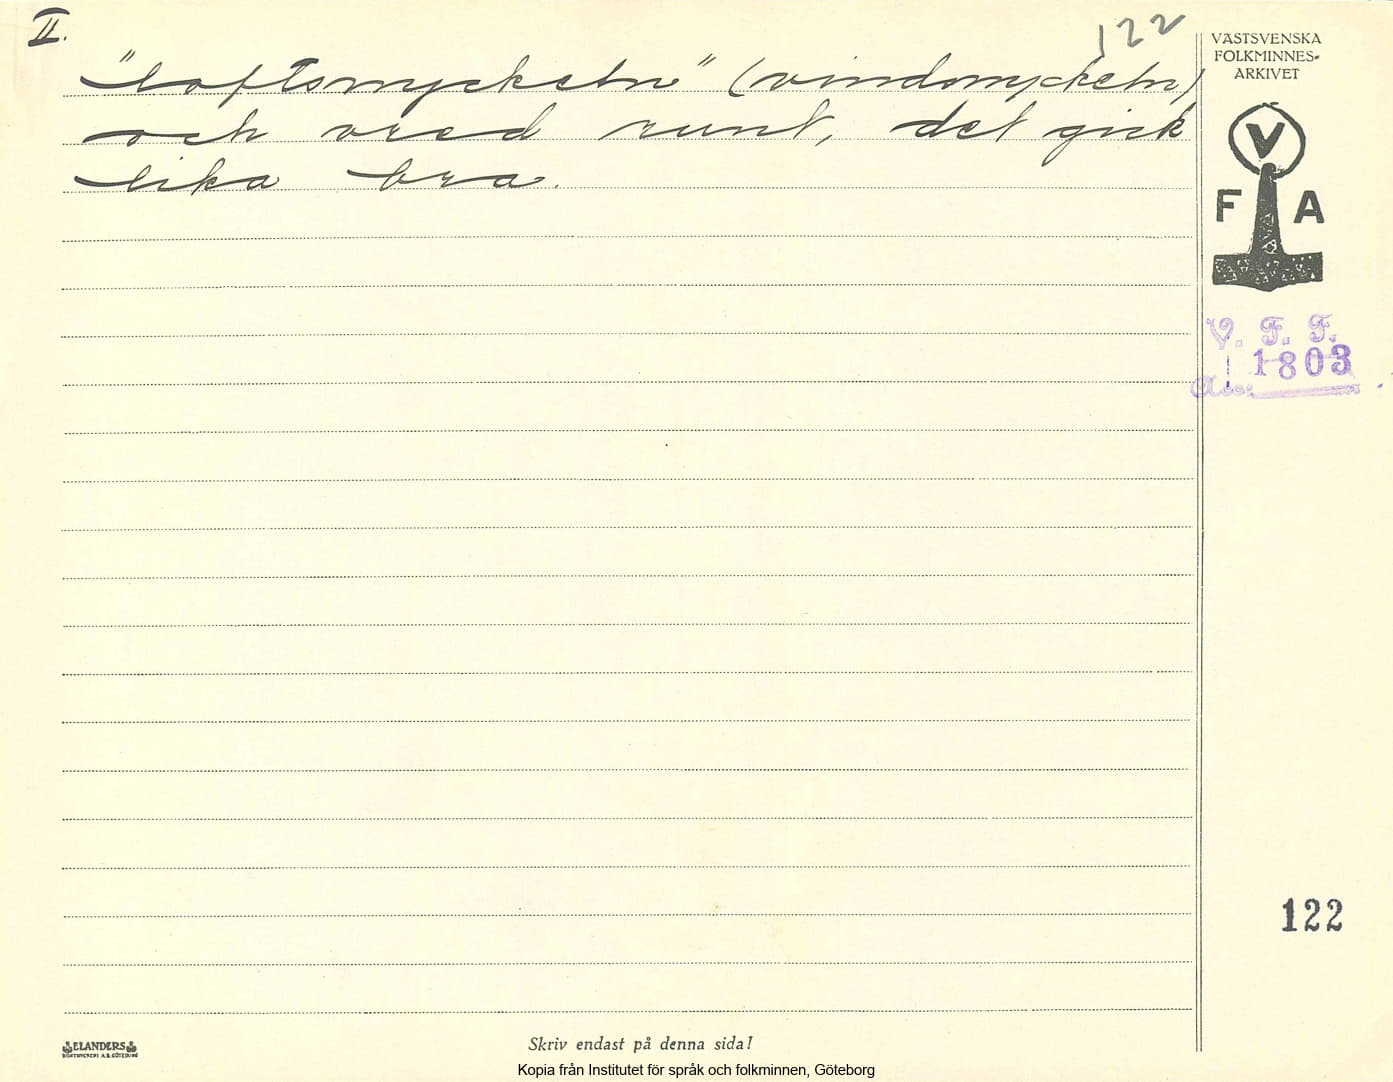 II.
122
"loftsnyckeln" (vindsnyckeln)
och vred runt, det gick
lika bra.
VÄSTSVENSKA
FOLKMINNES-
ARKIVET
V
F A
V. F. F.
1803
Acc:
122
ELANDERS
BOKTRYCKERI A.B. GÖTEBORG
Skriv endast på denna sida!
Kopia från Institutet för språk och folkminnen, Göteborg